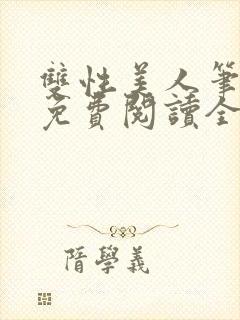 雙性美人筆
免費閱讀全
隋學義